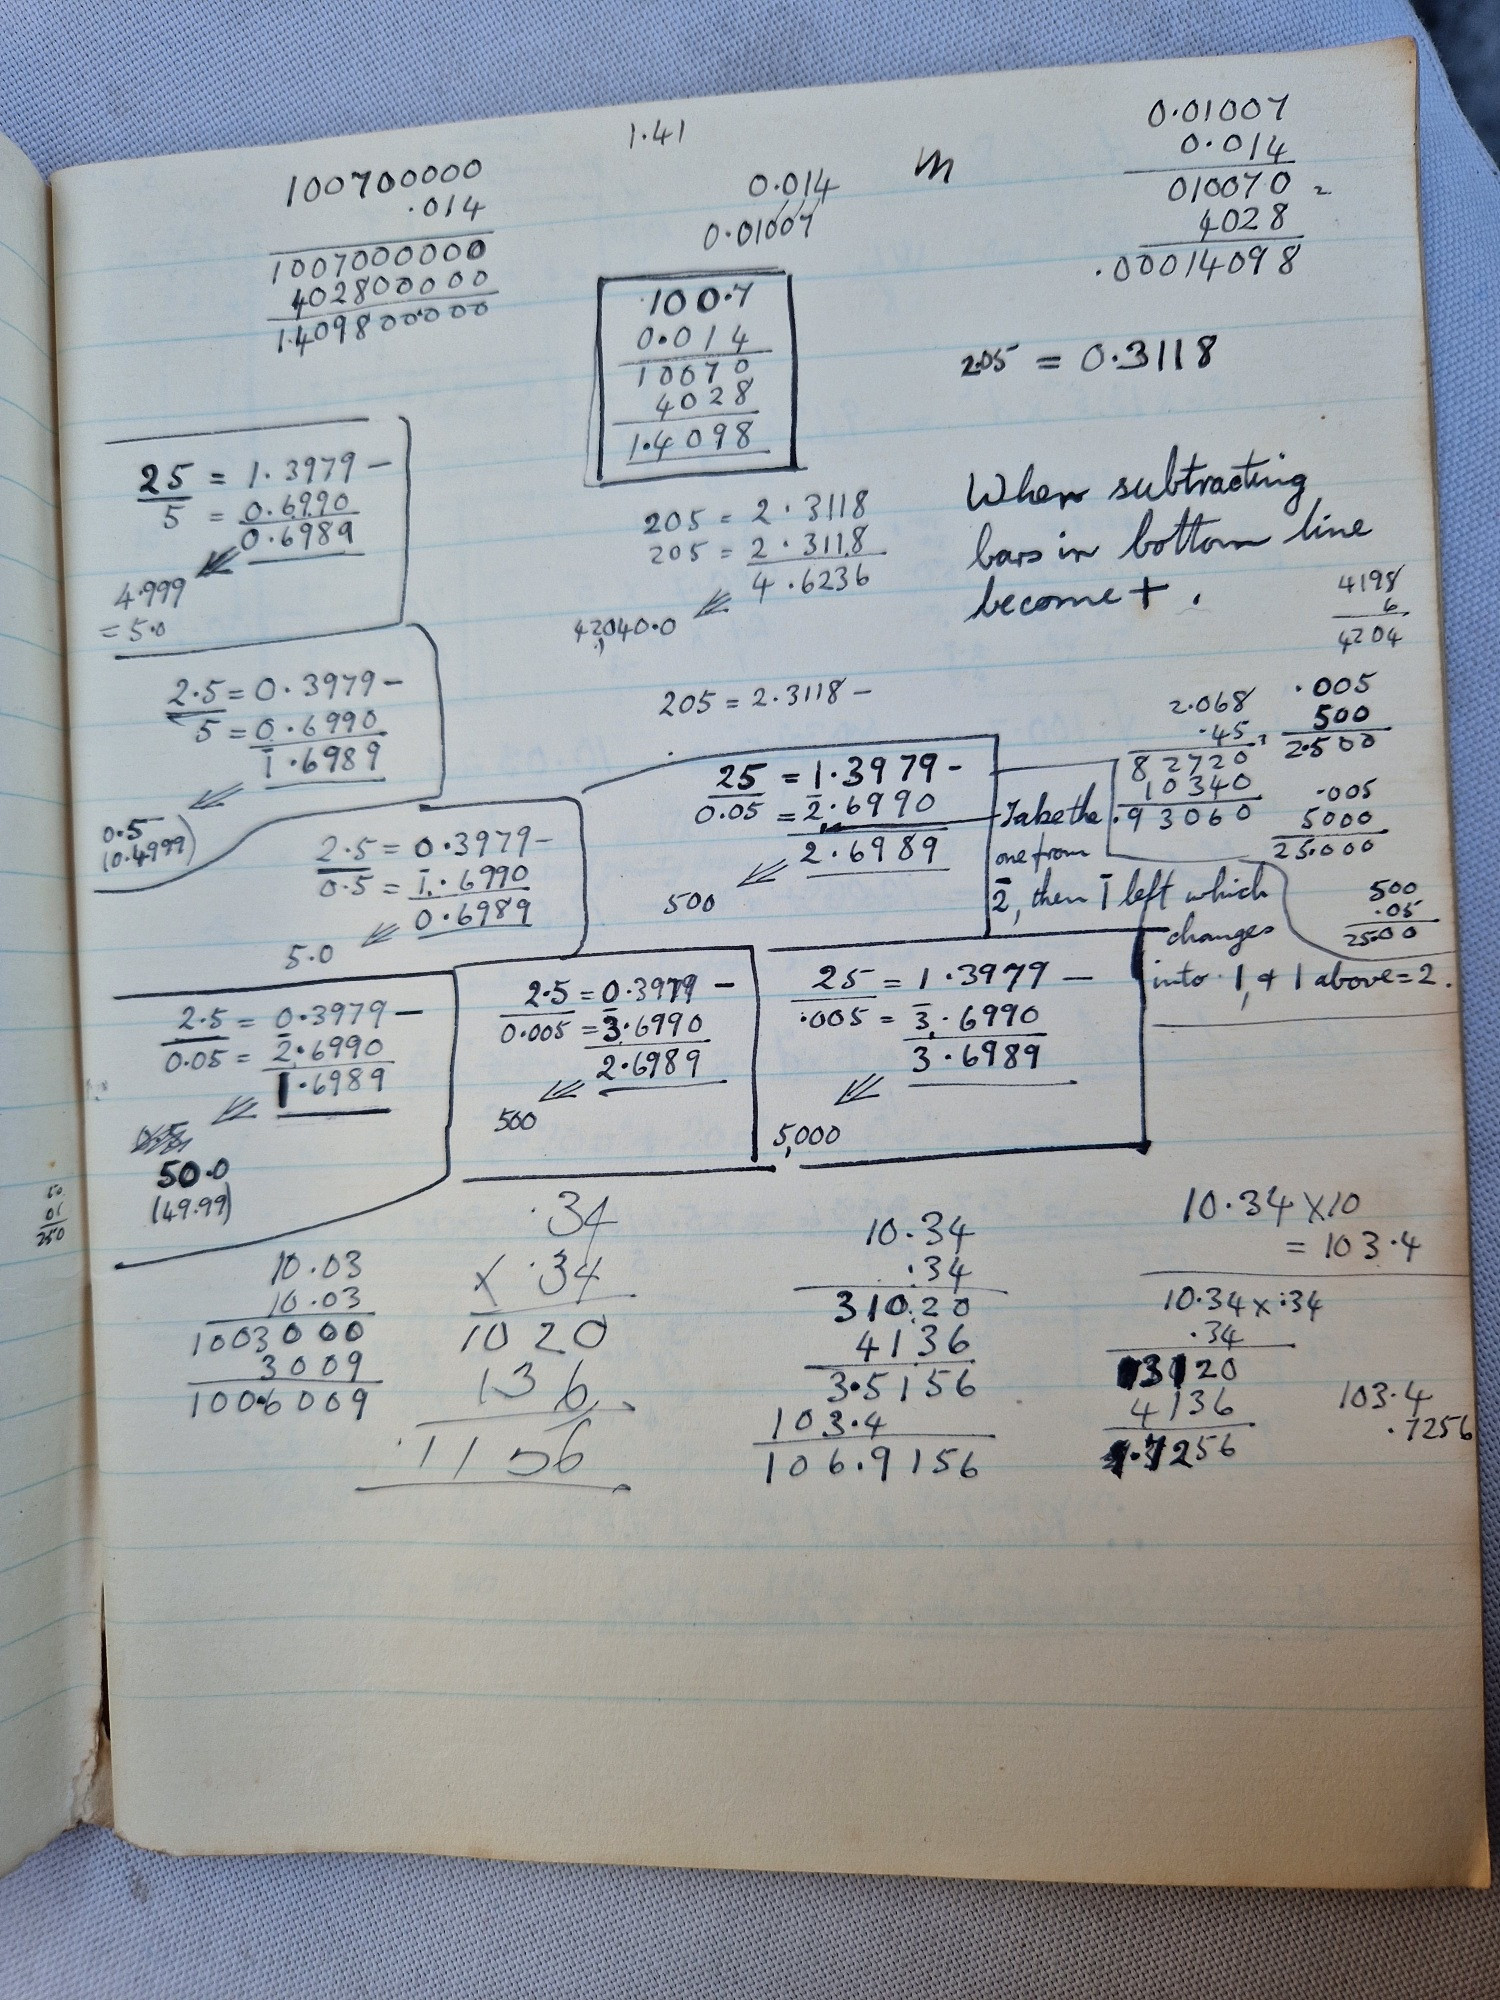 1.41
100700000
.014
1007000000
402800000
1.409800000
0.014
0.01007
m
0.01007
0.014
010070
4028
.00014098
100.7
0.014
10070
4028
1.4098
2.05 = 0.3118
25 = 1.3979 –
5 = 0.6990
0.6989
4.999
= 5.0
205 = 2.3118
205 = 2.3118
4.6236
42,040.0
When subtracting
bars in bottom line
become + .
4198
6
4204
2.5 = 0.3979 –
5 = 0.6990
1̄.6989
0.5
(0.4999)
205 = 2.3118 –
2.068
.45
82720
10340
.93060
.005
500
2.500
.005
5000
25.000
500
.05
25.00
2.5 = 0.3979 –
0.5 = 1̄.6990
0.6989
5.0
25 = 1.3979 –
0.05 = 2̄.6990
2.6989
500
Take the
one from
2̄, then 1̄ left which
changes
into 1, & 1 above = 2.
2.5 = 0.3979 –
0.05 = 2̄.6990
1.6989
50.0
(49.99)
2.5 = 0.3979 –
0.005 = 3̄.6990
2.6989
500
25 = 1.3979 –
.005 = 3̄.6990
3.6989
5,000
250
10.03
10.03
1003000
3009
100.6009
.34
× .34
1020
136
.1156
10.34
.34
310.20
4136
3.5156
103.4
106.9156
10.34 × 10
= 103.4
10.34 × .34
.34
4136
103.4
.7256